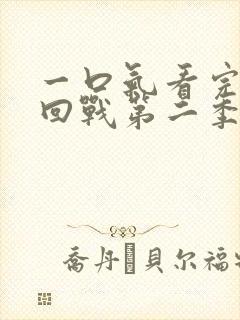 一口氣看完
回戰第二季
喬丹·貝尔福